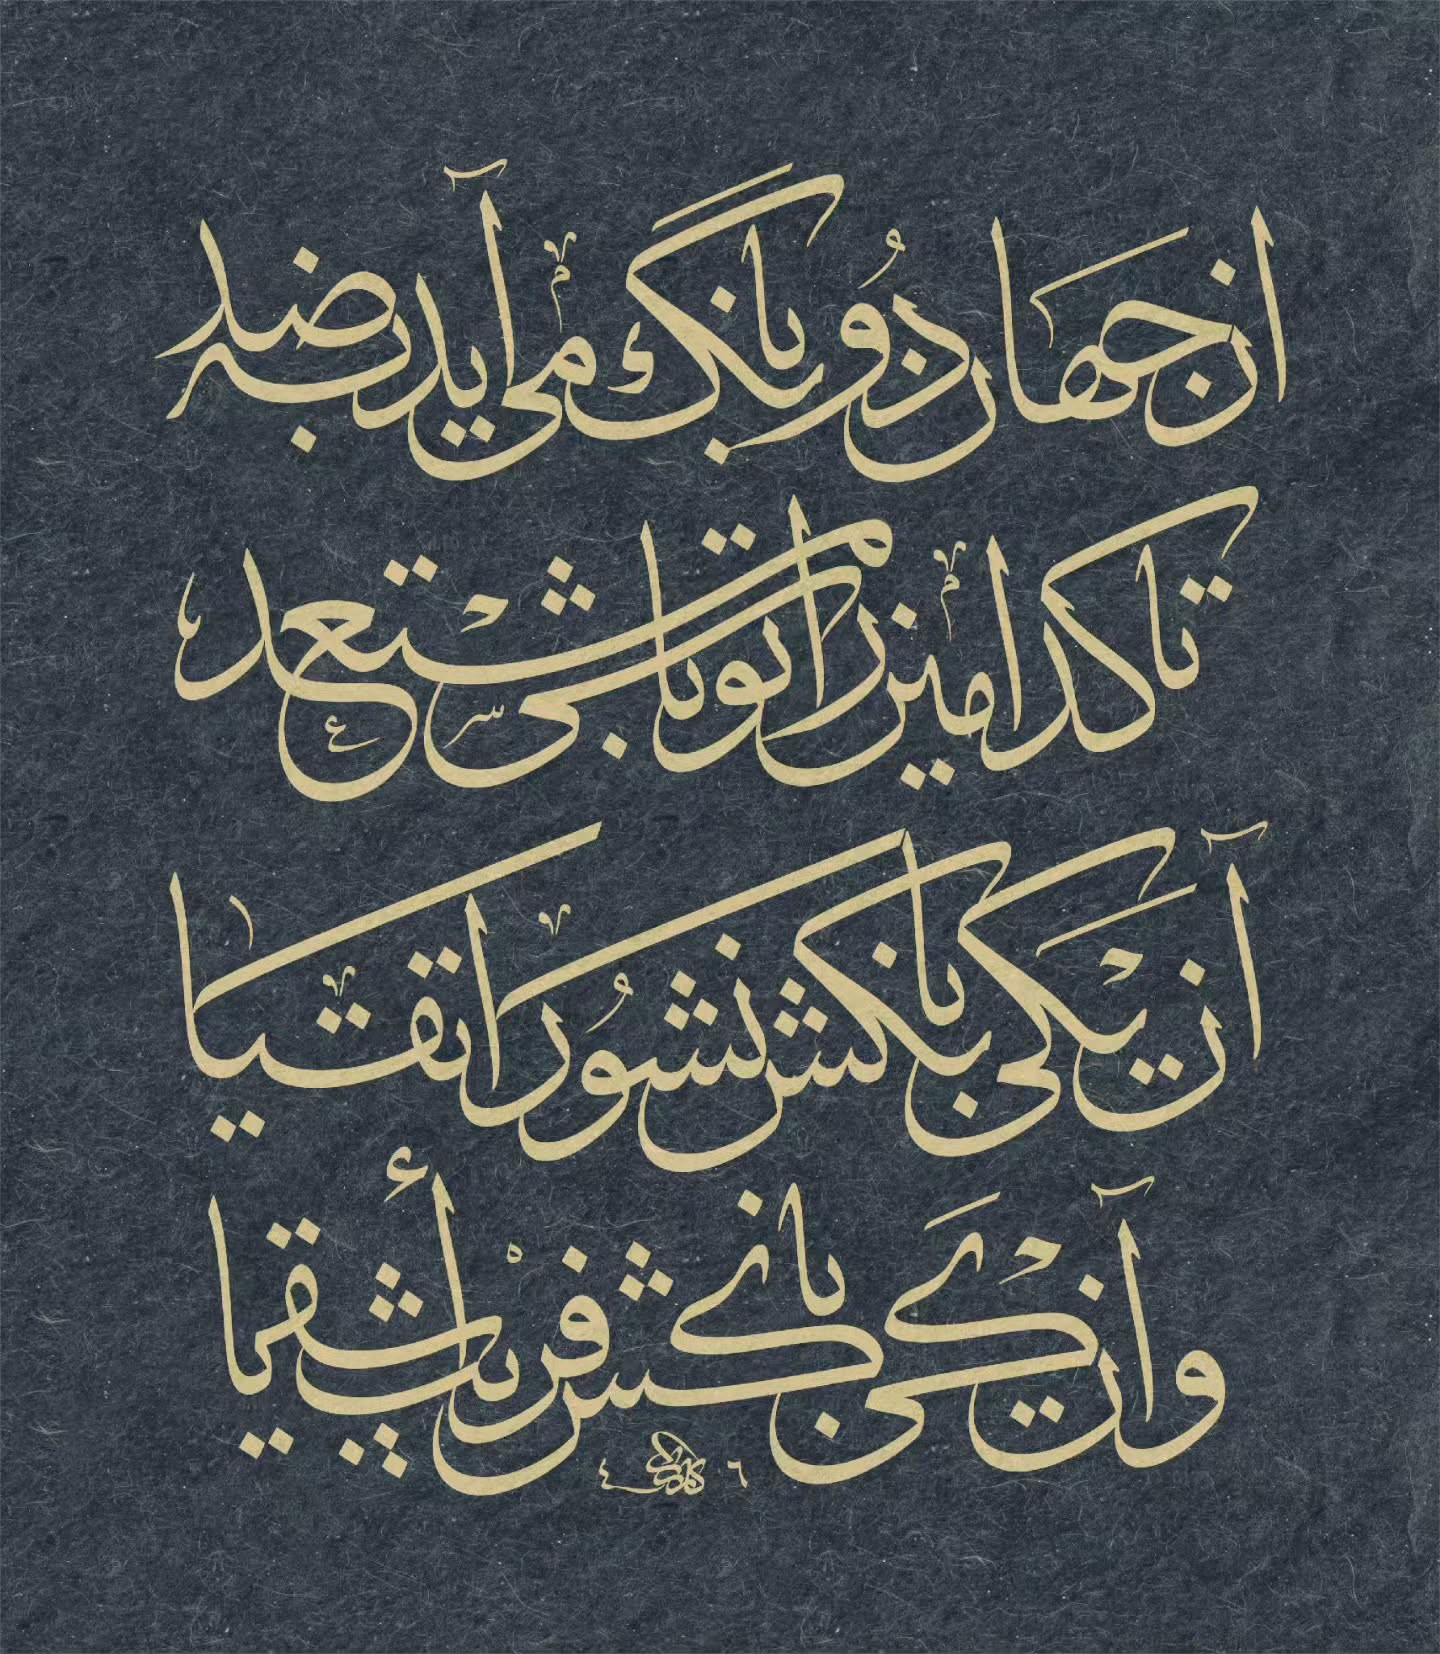 از جهان دو بانگ می آید به ضد
تا کدامین را تو باشی مستعد
آن یکی بانگش نشور اتقیا
وآن یکی بانگش فریب أشقیا